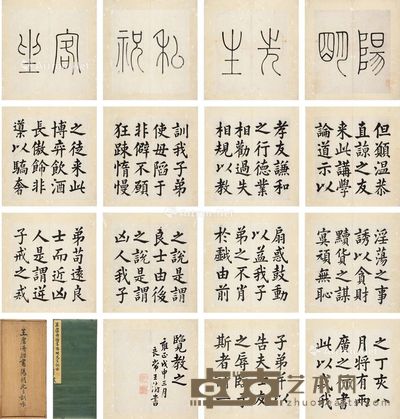 陽
明
先
生
私
祝
客
坐
但願溫恭
直諒之友
來此講學
論道示以
孝友謙和
之行德業
相勸過失
相規以教
訓我子弟
使毋陷于
非僻不願
狂躁惰慢
之徒來此
博弈飲酒
長傲飾非
導以驕奢
淫蕩之事
誘以貪財
黷貨之謀
冥頑無恥
扇惑鼓動
以益我子
弟之不肖
於戲由前
之說是謂
良士由後
之說是謂
凶人我子
弟苟遠良
士而近凶
人是謂逆
子戒之戒
之丁亥八
月將有兩
廣之行書
此以戒我
子弟并以
告夫士友
之辱臨于
斯者請一
覽教之
雍正戊申三月
良常王澍書